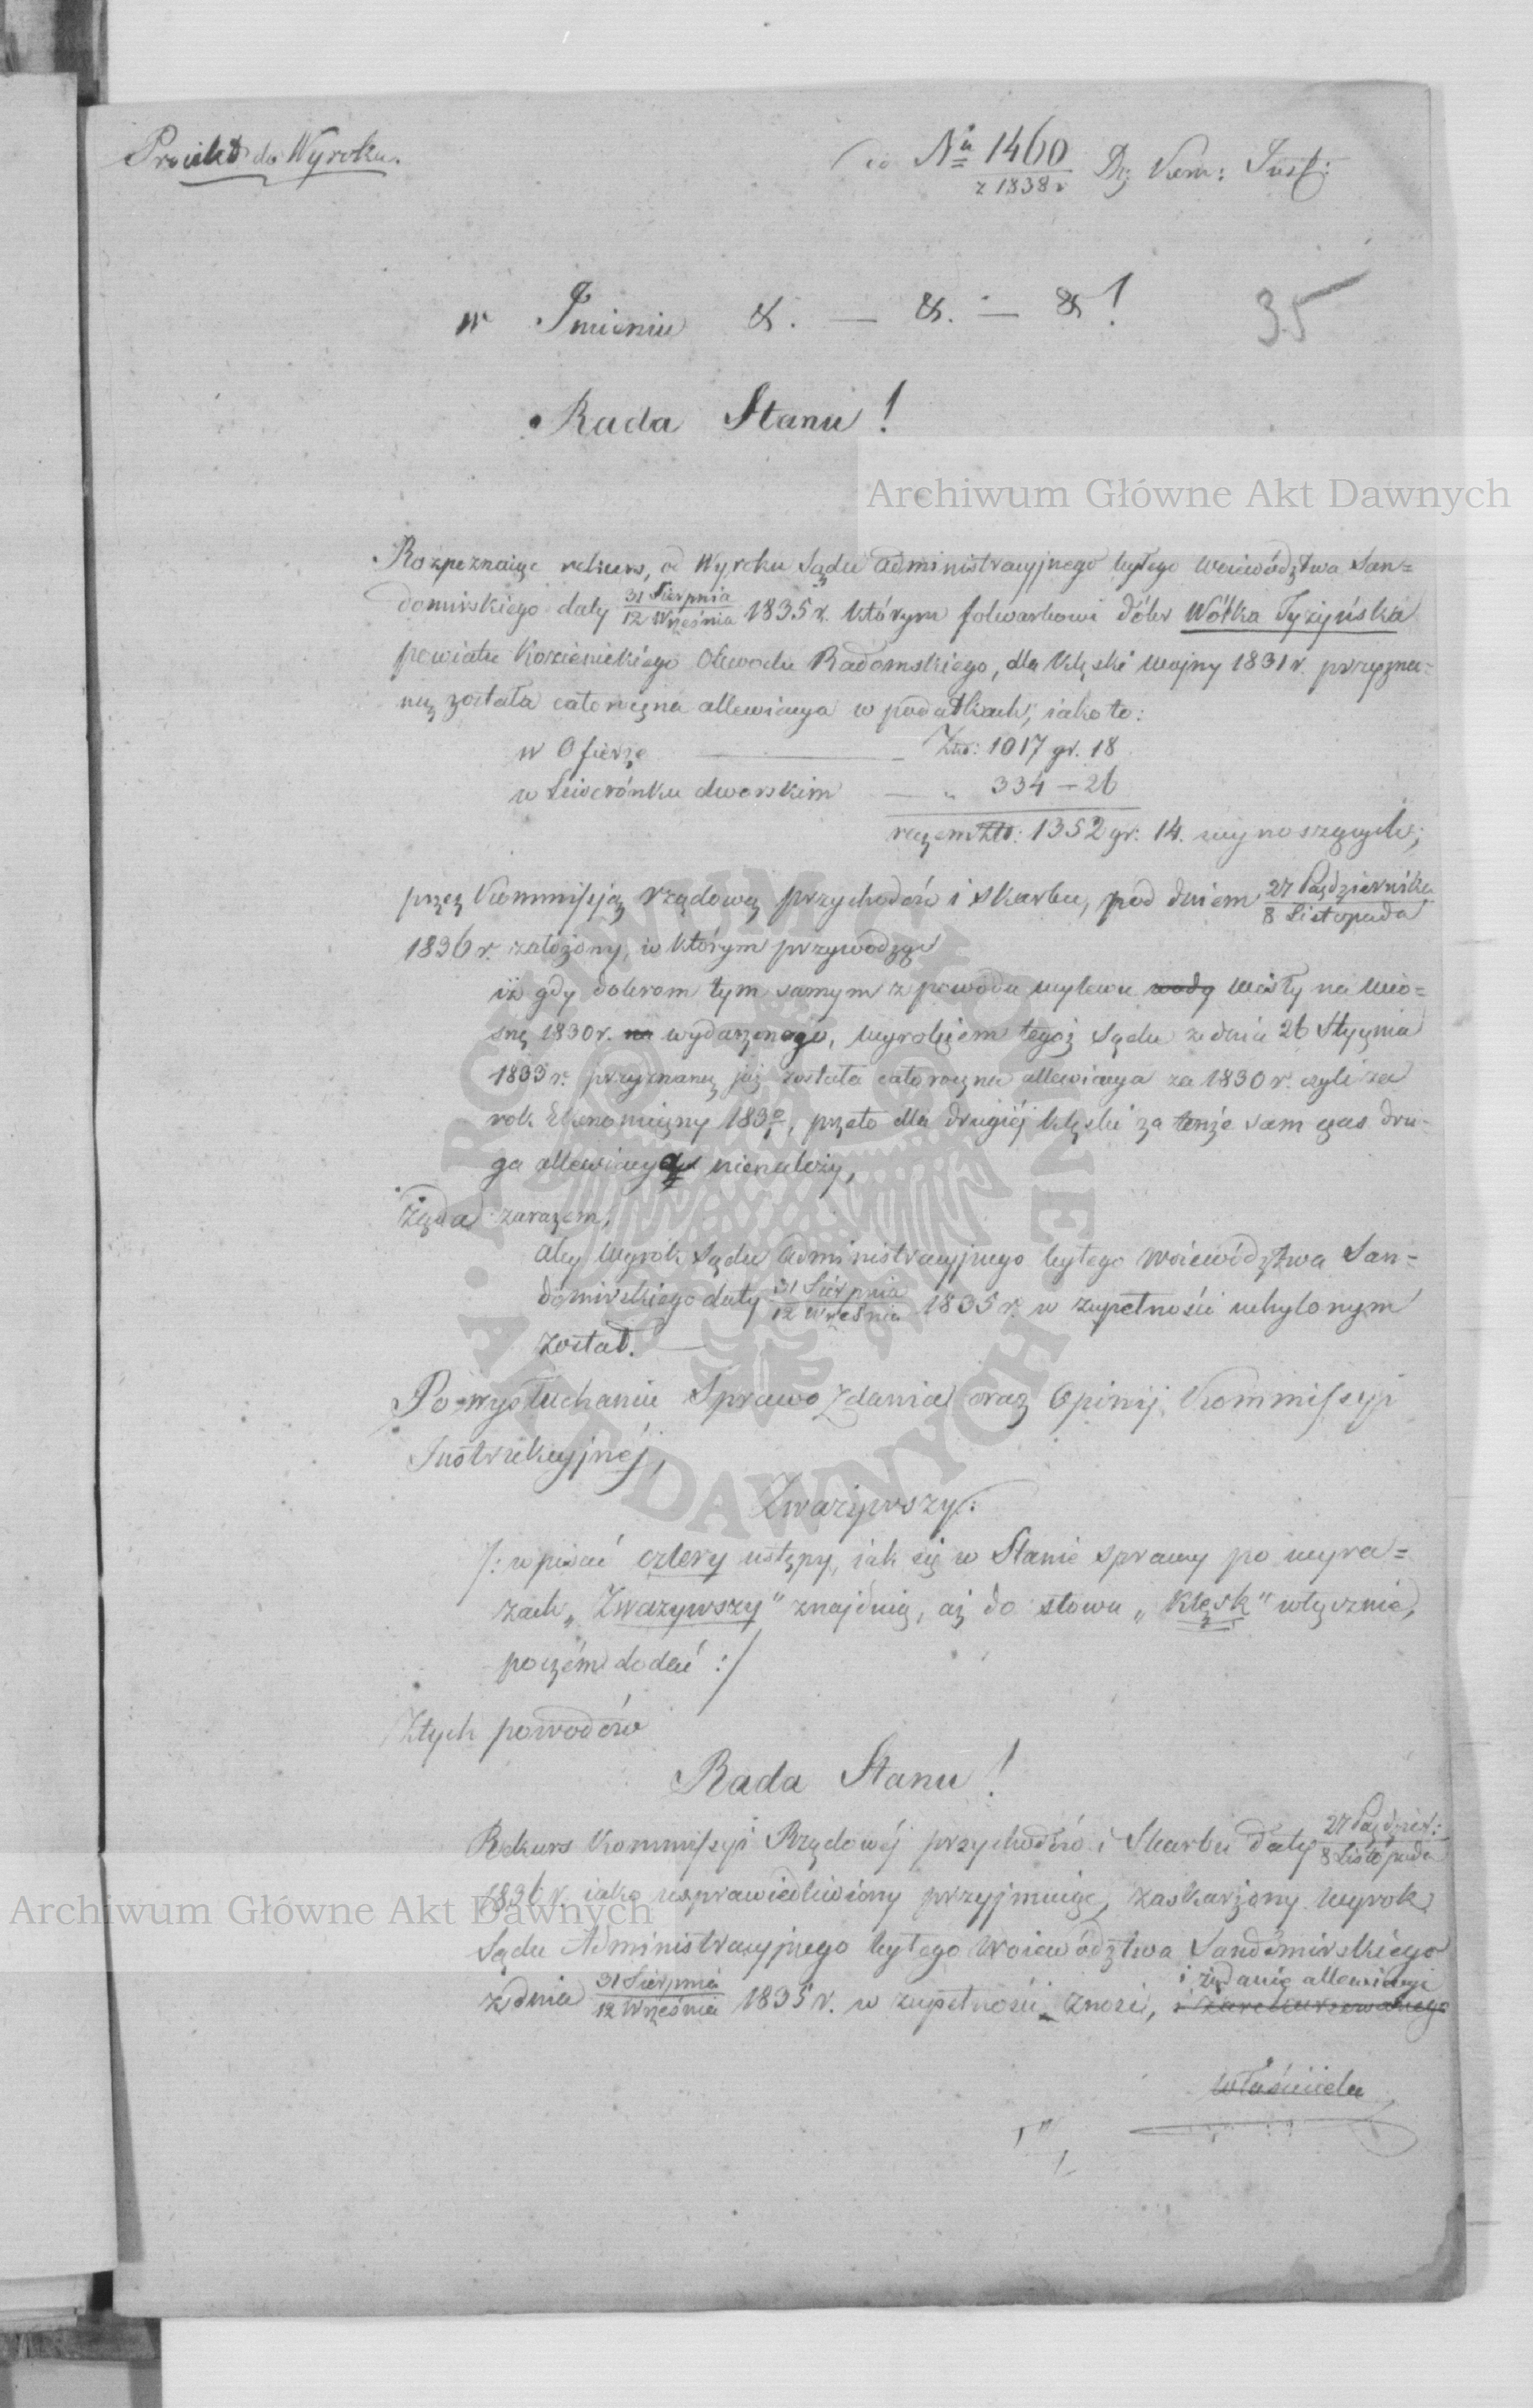 Proiekt do Wyroku.
do Nu 1460 z 1838 r Dz: Kom: Inst:
w Imieniu &. — &. — &!
35
Rada Stanu!
Archiwum Główne Akt Dawnych
Rozpoznaiąc rekurs, od Wyroku Sądu administracyjnego byłego Woiewództwa San=
domirskiego daty 31 Sierpnia / 12 Września 1835 r. którym folwarkowi dóbr Wólka Tyżyńska
powiatu Kozienickiego Obwodu Radomskiego, dla klęski wojny 1831 r. przyzna=
ną została całoroczna allewiacya w podatkach, iako to:
w Ofierze — Złp: 1017 gr. 18
w Liwerónku dworskim — „ 334 — 26
razem Złp: 1352 gr: 14. wynoszących;
przez Kommissją rządową przychodów i skarbu, pod dniem 27 Października / 8 Listopada
1836 r. założony, w którym przywodząc
iż gdy dobrom tym samym z powodu wylewu wody Wisły na wio=
snę 1830 r. na wydarzonego, wyrokiem tegoż Sądu z dnia 26 Stycznia
1833 r. przyznaną już została całoroczna allewiacya za 1830 r. czyli za
rok Ekonomiczny 1830/1, przeto dla drugiéj klęski za tenże sam czas dru=
ga allewiacya nienależy,
żąda zarazem,
aby wyrok Sądu administracyjnego byłego Woiewództwa San=
domirskiego daty 31 Sierpnia / 12 Września 1835 r. w zupełności uchylonym
został. —
Po wysłuchaniu Sprawozdania oraz Opinij Kommissyi
Instrukcyjnéj,
Zważywszy:
/: wpisać cztery ustępy, iak się w Stanie sprawy po wyra=
zach „Zważywszy" znajduią, aż do słowa „klęsk" włącznie,
poczém dodać :/
Z tych powodów
Rada Stanu!
Rekurs Kommissyi Rządowéj przychodów i Skarbu daty 27 Paździer: / 8 Listopada
1836 r. iako usprawiedliwiony przyjmuiąc, zaskarżony wyrok
Sądu Administracyjnego byłego Woiewództwa Sandomirskiego
z dnia 31 Sierpnia / 12 Września 1835 r. w zupełności znosi, i żądanie allewiacyi
i zarekursowanego
właściciela
Archiwum Główne Akt Dawnych
ARCHIWUM GŁÓWNE AKT DAWNYCH